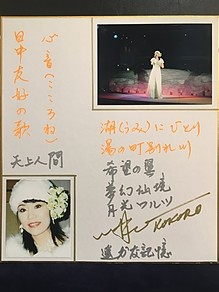 心音(こころね)
日中友好の歌
天上人間
湖(うみ)にひとり
湯の町別れ川
希望の翼
夢幻仙境
月光フルツ
KOKORO
遠方友記憶